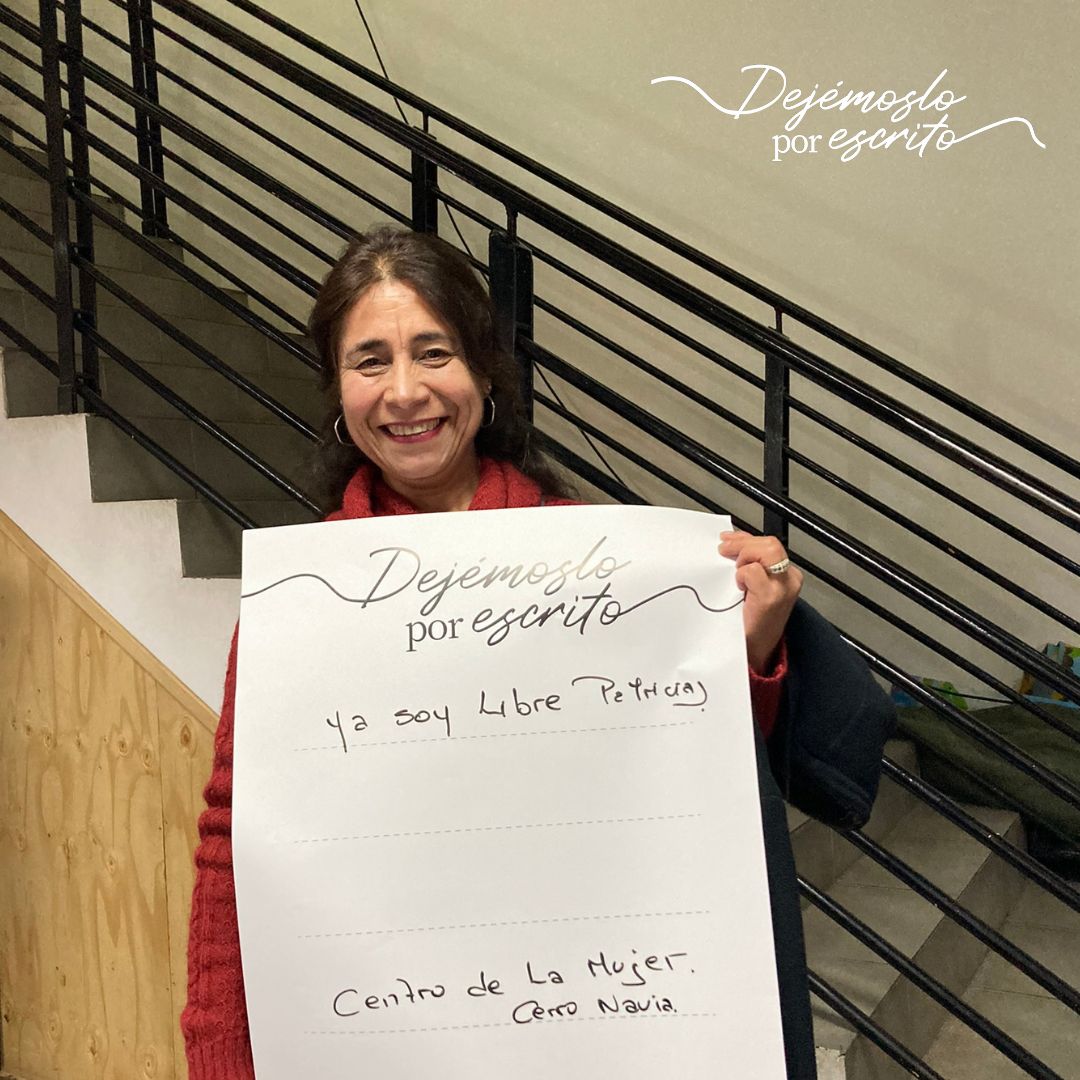 Dejémoslo
por escrito
Dejémoslo
por escrito
ya soy Libre Patricia
Centro de La Mujer.
Cerro Navia.